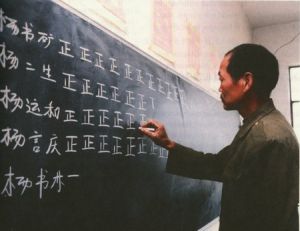 杨书矿 正正正正正正正正
杨二生 正正正正正正丅
杨运和 正正正正正正
杨言庆 正正正正正正正正
杨书 一